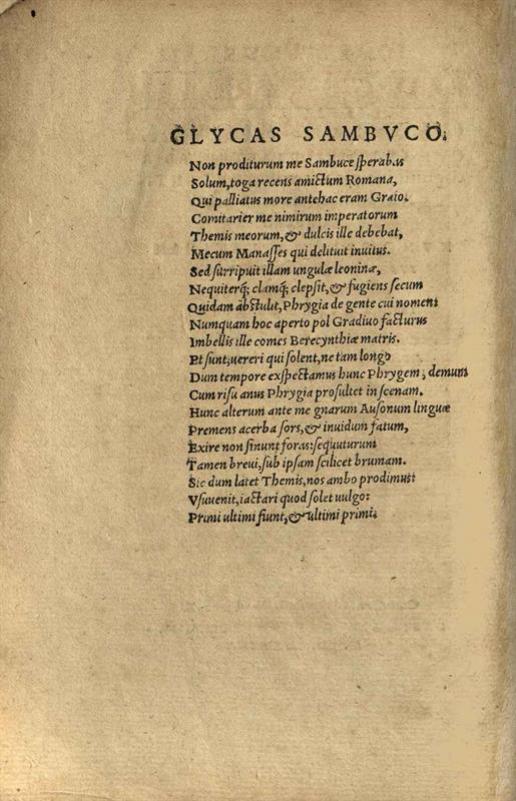 GLYCAS SAMBVCO.
Non proditurum me Sambuce ſperabas
Solum, toga recens amictum Romana,
Qui palliatus more antehac eram Graio.
Comitarier me nimirum imperatorum
Themis meorum, & dulcis ille debebat,
Mecum Manaſſes qui delituit inuitus.
Sed ſurripuit illam ungulæ leoninæ,
Nequiterq́; clamq́; clepſit, & fugiens ſecum
Quidam abſtulit, Phrygia de gente cui nomen:
Numquam hoc aperto pol Gradiuo facturus
Imbellis ille comes Berecynthiæ matris.
Et ſunt, uereri qui ſolent, ne tam longo
Dum tempore exſpectamus hunc Phrygem, demum
Cum riſu anus Phrygia proſultet in ſcenam.
Hunc alterum ante me gnarum Auſonum linguæ
Premens acerba ſors, & inuidum fatum,
Exire non ſinunt foras: ſequuturum
Tamen breui, ſub ipſam ſcilicet brumam.
Sic dum latet Themis, nos ambo prodimus:
Vſuuenit, iactari quod ſolet uulgo:
Primi ultimi fiunt, & ultimi primi.